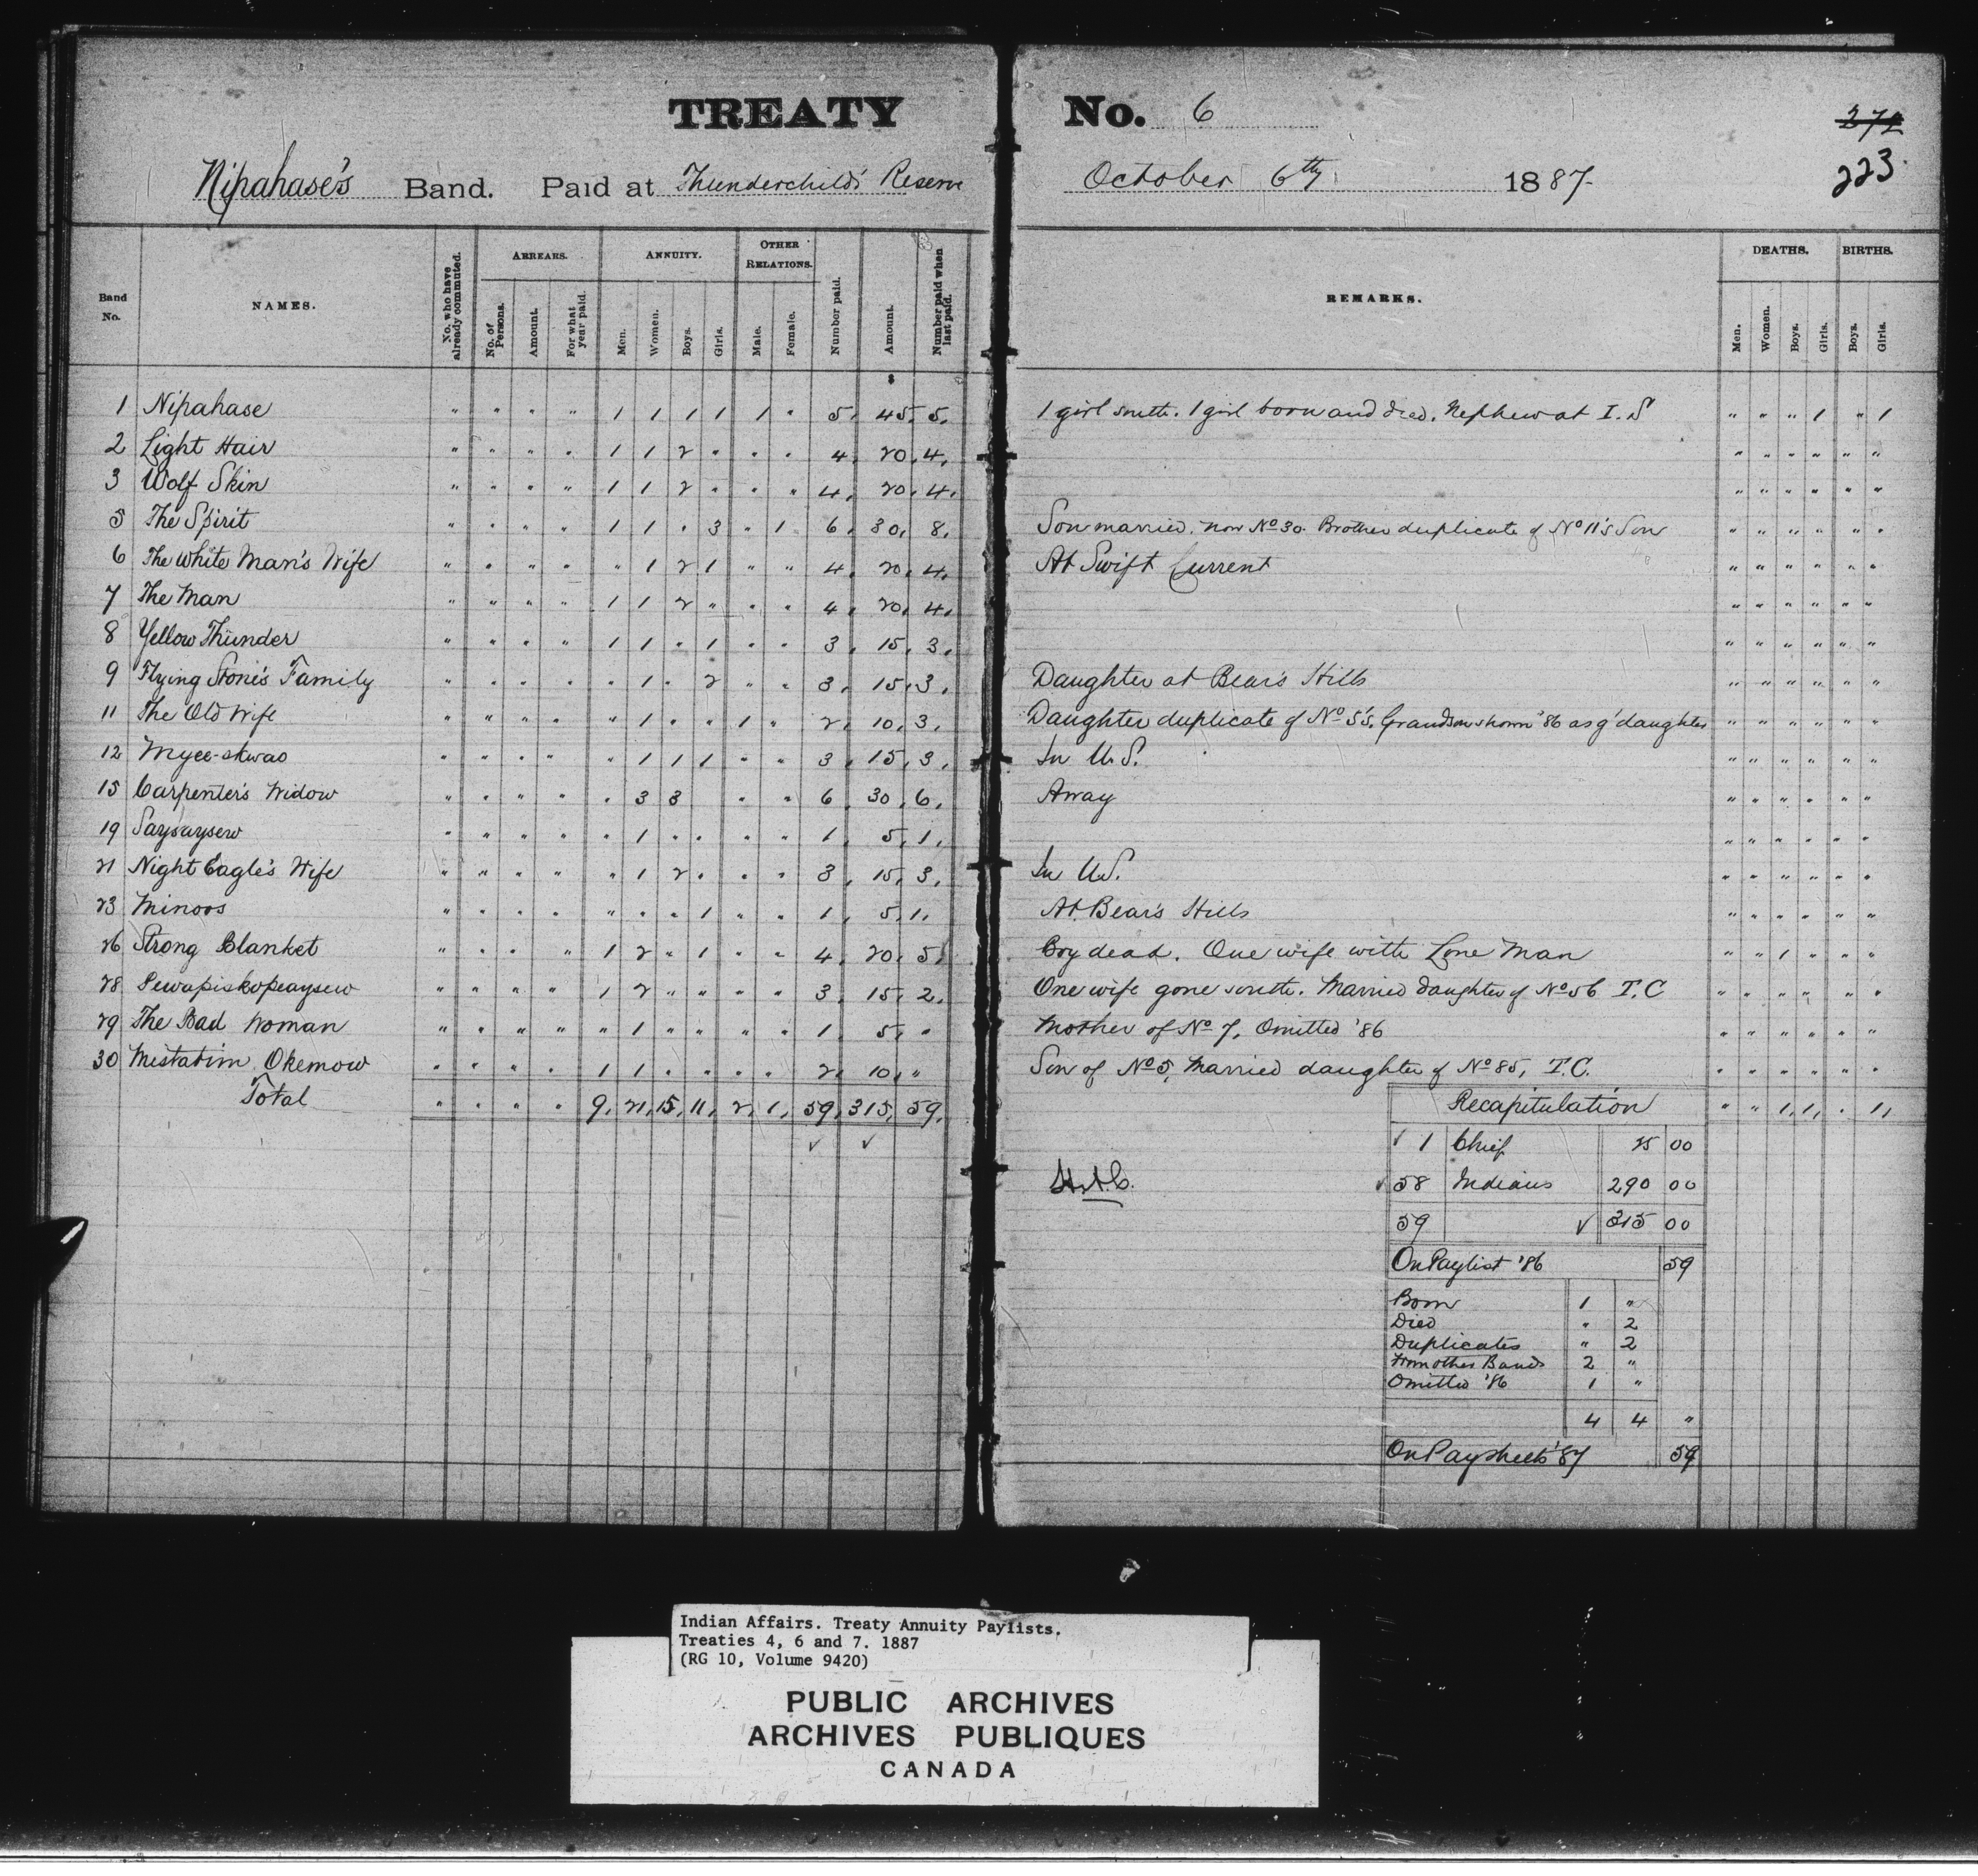 TREATY No. 6
272
223.
Nipahase's Band. Paid at Thunderchilds' Reserve October 6th 1887.
Band No. NAMES. No. who have already commuted. ARREARS. No. of Persons. Amount. For what year paid. ANNUITY. Men. Women. Boys. Girls. OTHER RELATIONS. Male. Female. Number paid. Amount. Number paid when last paid. REMARKS. DEATHS. Men. Women. Boys. Girls. BIRTHS. Boys. Girls.
$
1 Nipahase " " " " 1 1 1 1 1 " 5. 45. 5. 1 girl south. 1 girl born and died. Nephew at I.S " " " 1 " 1
2 Light Hair " " " " 1 1 2 " " " 4. 20. 4. " " " " " "
3 Wolf Skin " " " " 1 1 2 " " " 4. 20. 4. " " " " " "
5 The Spirit " " " " 1 1 " 3 " 1 6. 30. 8. Son married. now No 30. Brother duplicate of No 11's Son " " " " " "
6 The White Man's Wife " " " " " 1 2 1 " " 4. 20. 4. At Swift Current " " " " " "
7 The Man " " " " 1 1 2 " " " 4. 20. 4. " " " " " "
8 Yellow Thunder " " " " 1 1 " 1 " " 3. 15. 3. " " " " " "
9 Flying Stone's Family " " " " " 1 " 2 " " 3. 15. 3. Daughter at Bear's Hills " " " " " "
11 The Old Wife " " " " " 1 " " 1 " 2. 10. 3. Daughter duplicate of No 5's. Grandson shown '86 as g'daughter " " " " " "
12 Myee-skwao " " " " " 1 1 1 " " 3. 15. 3. In U.S. " " " " " "
15 Carpenter's Widow " " " " " 3 3 " " 6. 30. 6. Away " " " " " "
19 Saysaysew " " " " " 1 " " " " 1. 5. 1. " " " " " "
21 Night Eagle's Wife " " " " " 1 2 " " " 3. 15. 3. In U.S. " " " " " "
23 Minoos " " " " " " " 1 " " 1. 5. 1. At Bear's Hills " " " " " "
26 Strong Blanket " " " " 1 2 " 1 " " 4. 20. 5. Boy dead. One wife with Lone Man " " 1 " " "
28 Pewapiskopeaysew " " " " 1 2 " " " " 3. 15. 2. One wife gone south. Married daughter of No 56 T.C " " " " " "
29 The Bad Woman " " " " " 1 " " " " 1. 5. " Mother of No 7, Omitted '86 " " " " " "
30 Mistatim Okemow " " " " 1 1 " " " " 2. 10. " Son of No 5, Married daughter of No 85, T.C. " " " " " "
Total " " " " 9. 21. 15. 11. 2. 1. 59. 315. 59. Recapitulation " " 1. 1. " 1.
✓ ✓
✓ 1 Chief 25 00
✓ 58 Indians 290 00
59 ✓ 315 00
On Paylist '86 59
Born 1 "
Died " 2
Duplicates " 2
From other Bands 2 "
Omitted '86 1 "
4 4 "
On Paysheets '87 59
Indian Affairs. Treaty Annuity Paylists.
Treaties 4, 6 and 7. 1887
(RG 10, Volume 9420)
PUBLIC ARCHIVES
ARCHIVES PUBLIQUES
CANADA